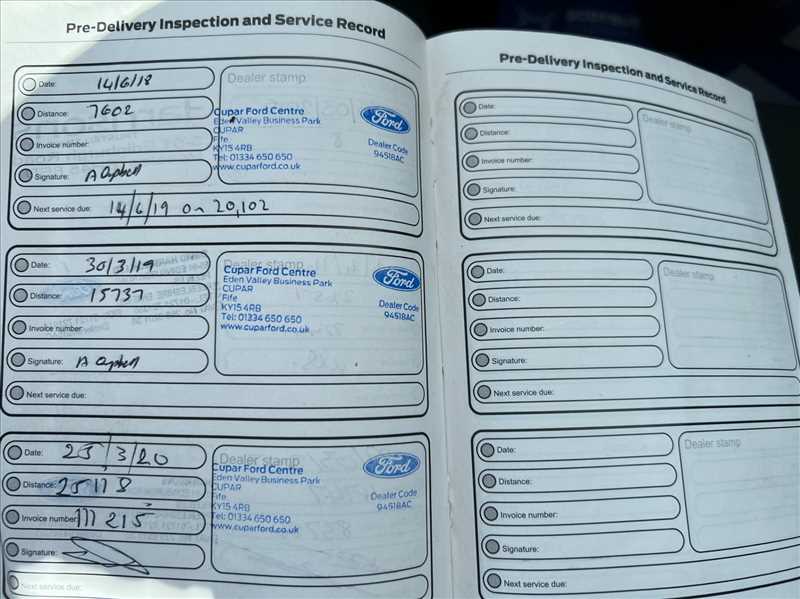 Pre-Delivery Inspection and Service Record
Date: 14/6/18
Distance: 7602
Invoice number:
Signature:
Next service due: 14/6/19 on 20,102
Dealer stamp
Cupar Ford Centre
Eden Valley Business Park
CUPAR
Fife
KY15 4RB
Tel: 01334 650 650
www.cuparford.co.uk
Ford
Dealer Code
94518AC
Date: 30/3/19
Distance: 15737
Invoice number:
Signature:
Next service due:
Dealer stamp
Cupar Ford Centre
Eden Valley Business Park
CUPAR
Fife
KY15 4RB
Tel: 01334 650 650
www.cuparford.co.uk
Ford
Dealer Code
94518AC
Date: 25/3/20
Distance: 25118
Invoice number: 111215
Signature:
Next service due:
Dealer stamp
Cupar Ford Centre
Eden Valley Business Park
CUPAR
Fife
KY15 4RB
Tel: 01334 650 650
www.cuparford.co.uk
Ford
Dealer Code
94518AC
Pre-Delivery Inspection and Service Record
Date:
Distance:
Invoice number:
Signature:
Next service due:
Dealer stamp
Date:
Distance:
Invoice number:
Signature:
Next service due:
Dealer stamp
Date:
Distance:
Invoice number:
Signature:
Next service due:
Dealer stamp